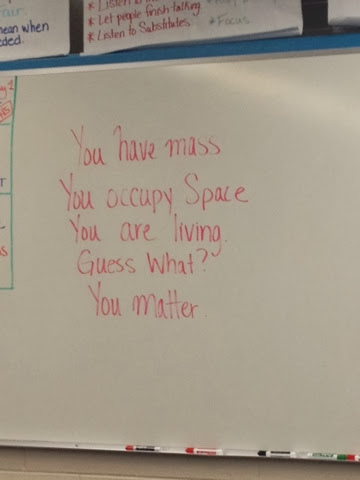 * Let people finish talking
* Listen to Substitutes.
*Focus.
mean when
You have mass
You occupy Space
You are living.
Guess What?
You matter.